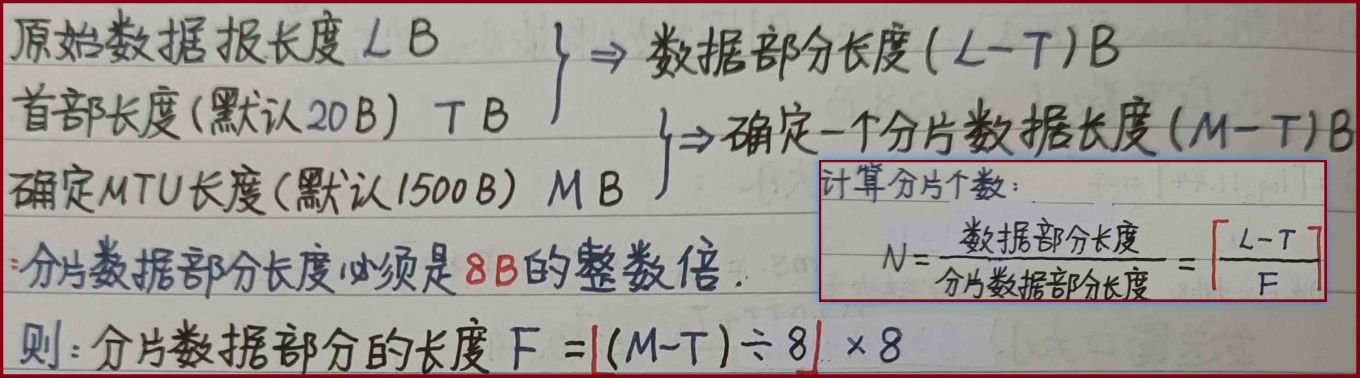 原始数据报长度 L B } ⇒ 数据部分长度(L-T)B
首部长度(默认20B) T B } ⇒ 确定一个分片数据长度(M-T)B
确定MTU长度(默认1500B) M B
∵分片数据部分长度必须是8B的整数倍.
则:分片数据部分的长度 F = ⌊(M-T)÷8⌋ × 8
计算分片个数:
N = 数据部分长度 / 分片数据部分长度 = ⌈ L-T / F ⌉